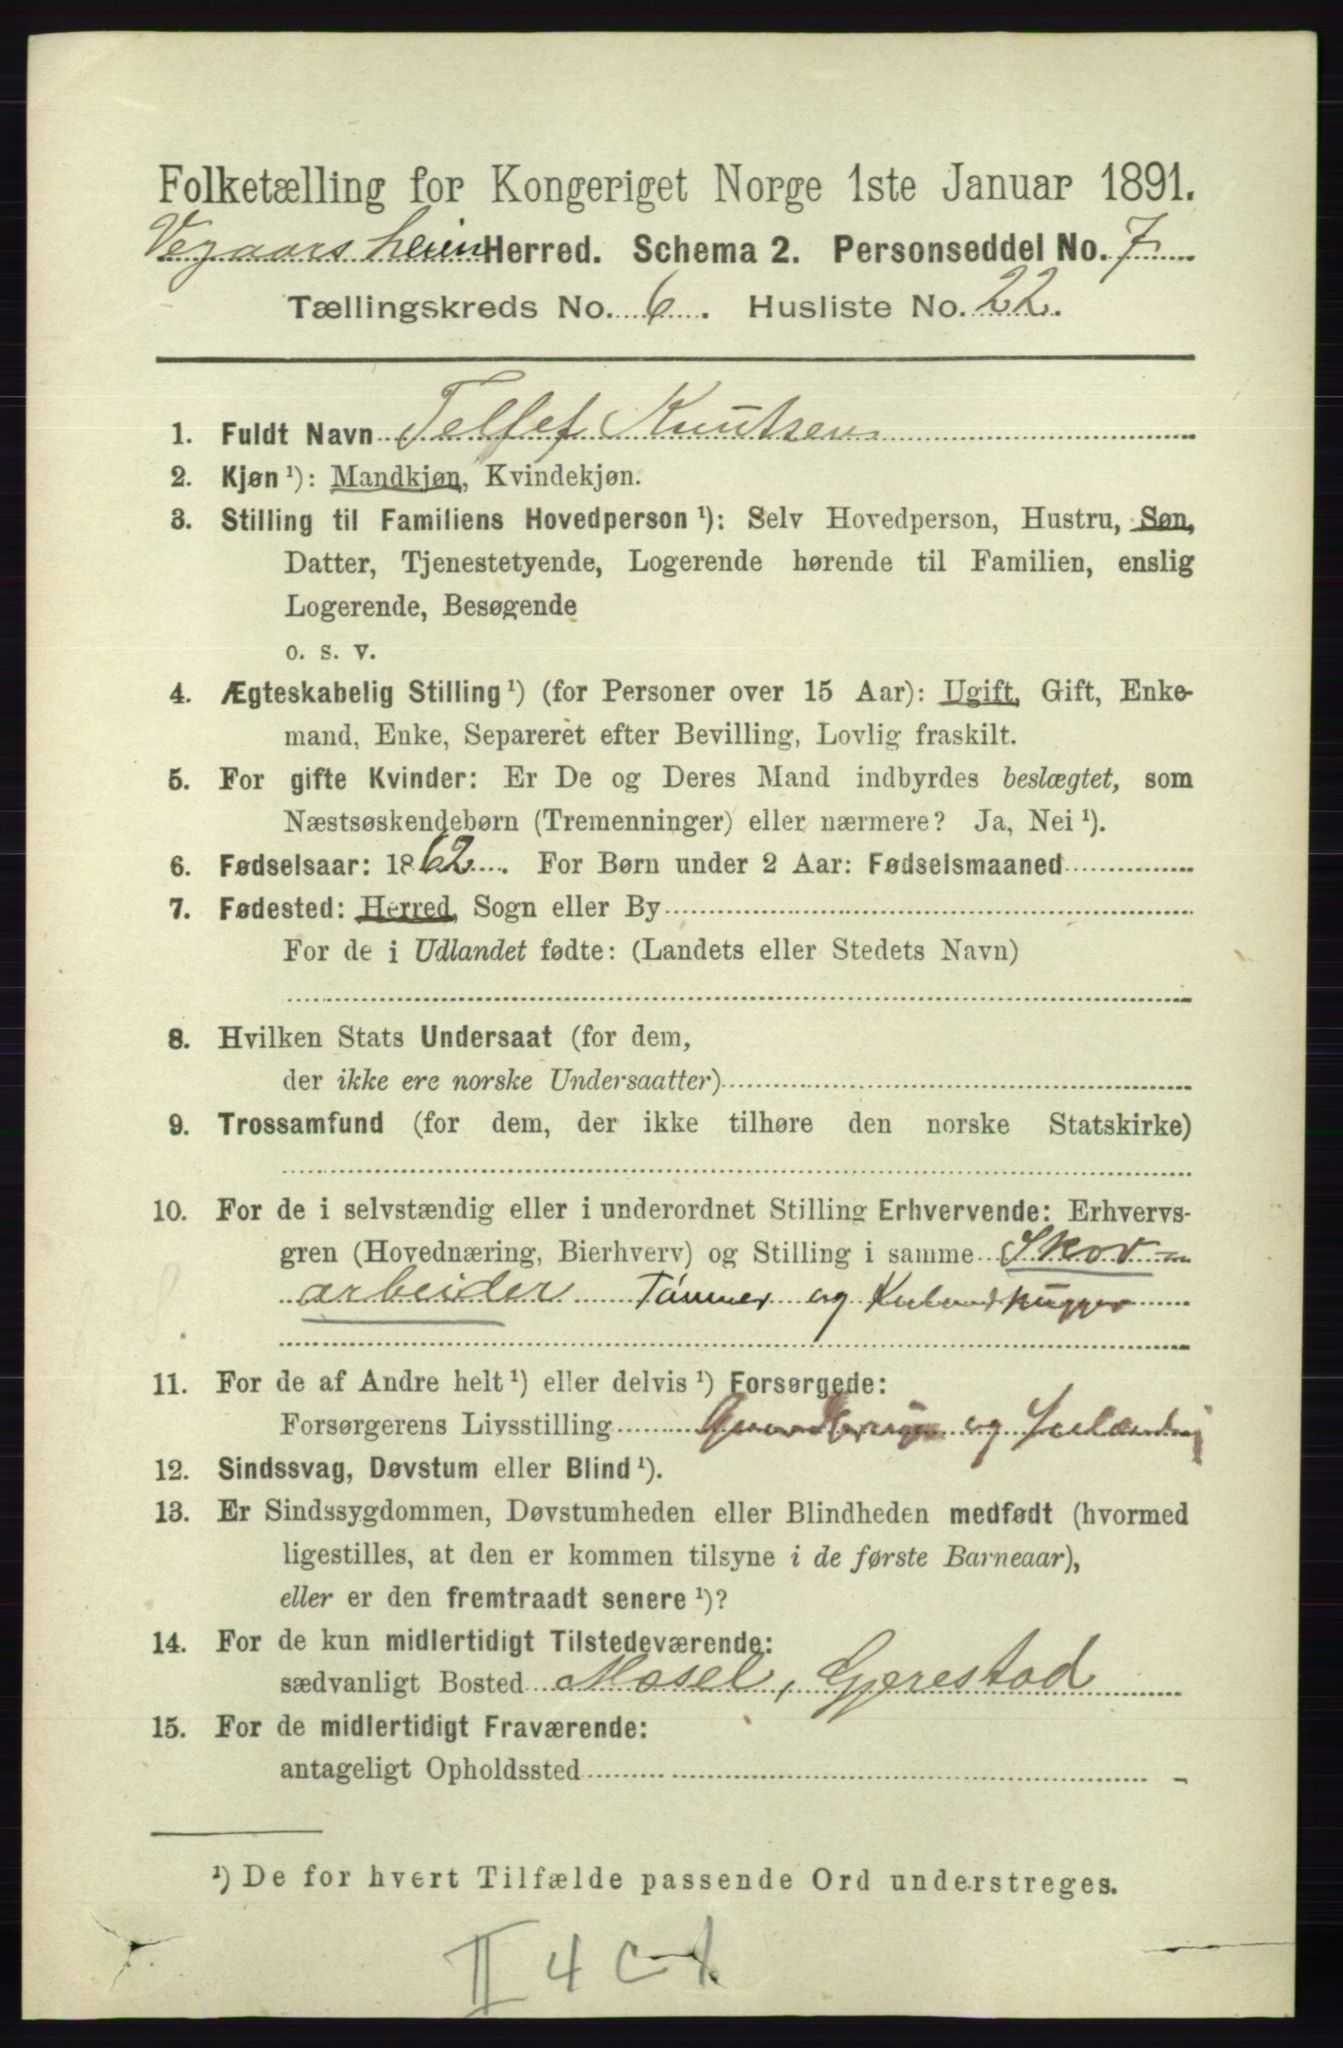 Folketælling for Kongeriget Norge 1ste Januar 1891.
Vegaarsheien Herred. Schema 2. Personseddel No. 7
Tællingskreds No. 6. Husliste No. 22.
1. Fuldt Navn Tellef Knutsen
2. Kjøn ¹): Mandkjøn, Kvindekjøn.
3. Stilling til Familiens Hovedperson ¹): Selv Hovedperson, Hustru, Søn,
Datter, Tjenestetyende, Logerende hørende til Familien, enslig
Logerende, Besøgende
o. s. v.
4. Ægteskabelig Stilling ¹) (for Personer over 15 Aar): Ugift, Gift, Enke-
mand, Enke, Separeret efter Bevilling, Lovlig fraskilt.
5. For gifte Kvinder: Er De og Deres Mand indbyrdes beslægtet, som
Næstsøskendebørn (Tremenninger) eller nærmere? Ja, Nei ¹).
6. Fødselsaar: 1862. For Børn under 2 Aar: Fødselsmaaned
7. Fødested: Herred, Sogn eller By
For de i Udlandet fødte: (Landets eller Stedets Navn)
8. Hvilken Stats Undersaat (for dem,
der ikke ere norske Undersaatter)
9. Trossamfund (for dem, der ikke tilhøre den norske Statskirke)
10. For de i selvstændig eller i underordnet Stilling Erhvervende: Erhvervs-
gren (Hovednæring, Bierhverv) og Stilling i samme Skov-
arbeider Tømmer og
11. For de af Andre helt ¹) eller delvis ¹) Forsørgede:
Forsørgerens Livsstilling og
12. Sindssvag, Døvstum eller Blind ¹).
13. Er Sindssygdommen, Døvstumheden eller Blindheden medfødt (hvormed
ligestilles, at den er kommen tilsyne i de første Barneaar),
eller er den fremtraadt senere ¹)?
14. For de kun midlertidigt Tilstedeværende:
sædvanligt Bosted Mosel, Gjerestad
15. For de midlertidigt Fraværende:
antageligt Opholdssted
¹) De for hvert Tilfælde passende Ord understreges.
II 4 c-1